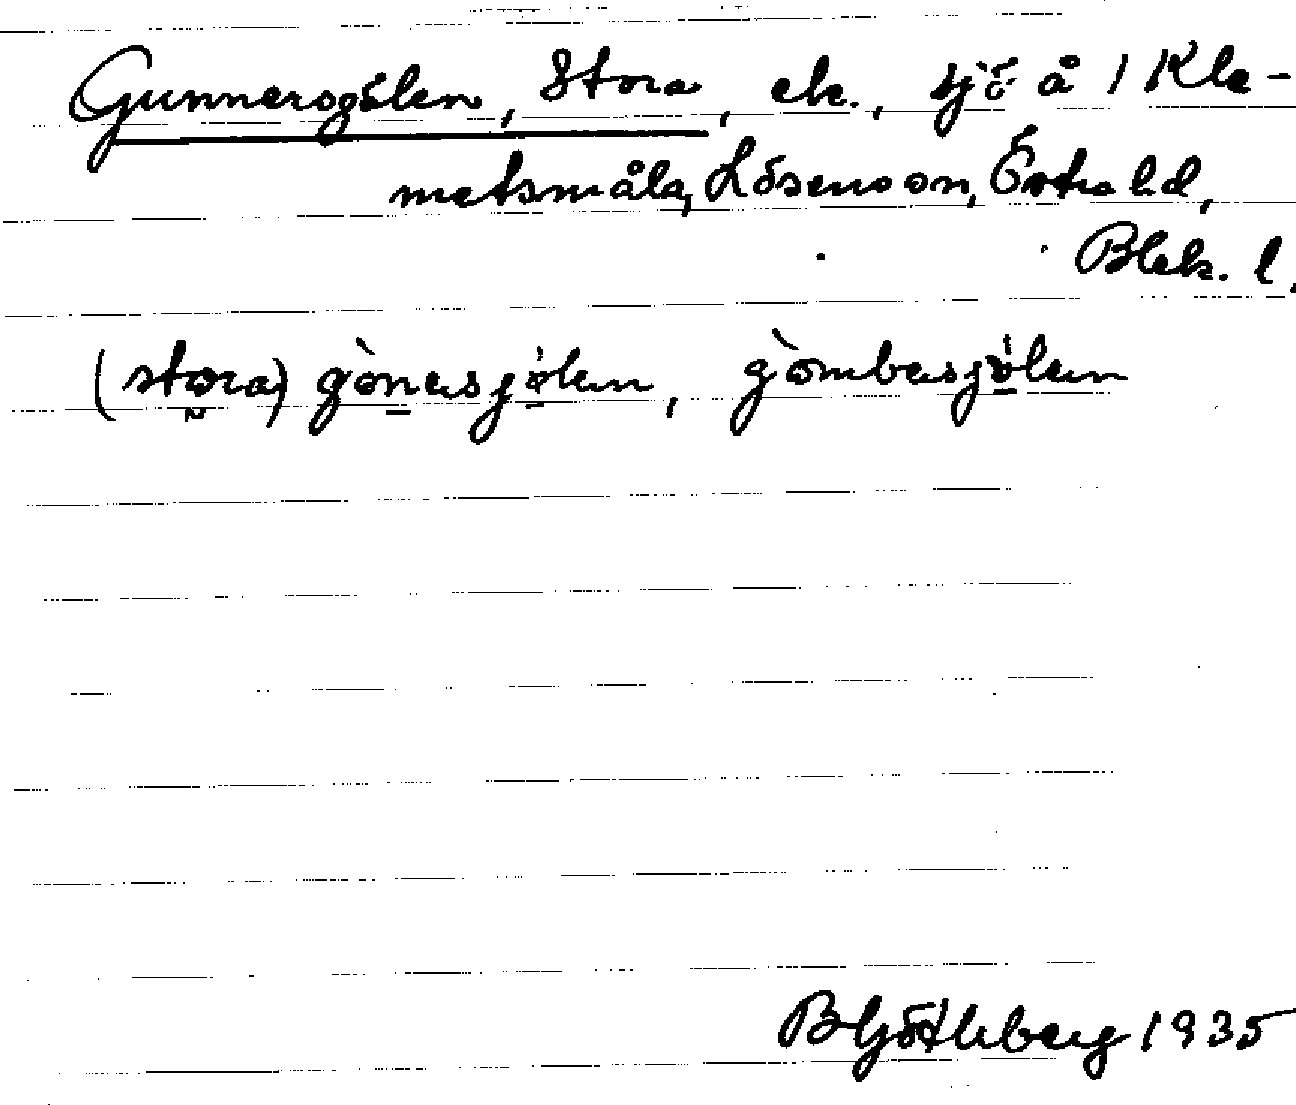 Gunnersgölen, Stora, ek., sjö å 1 Kle-
metsmåla, Lösens sn, Östra hd,
Blek. l.
(stora) gònasjölen, gòmbasjölen
B Göthberg 1935